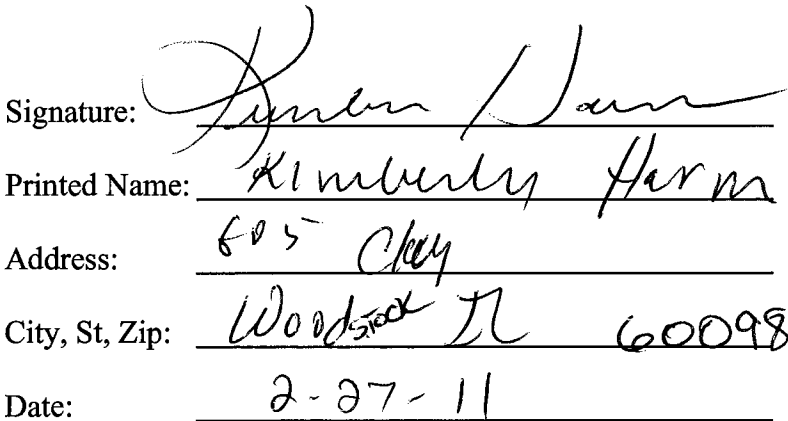 Signature: Kimberly Harm
Printed Name: Kimberly Harm
Address: 605 Clay
City, St, Zip: Woodstock IL 60098
Date: 2-27-11